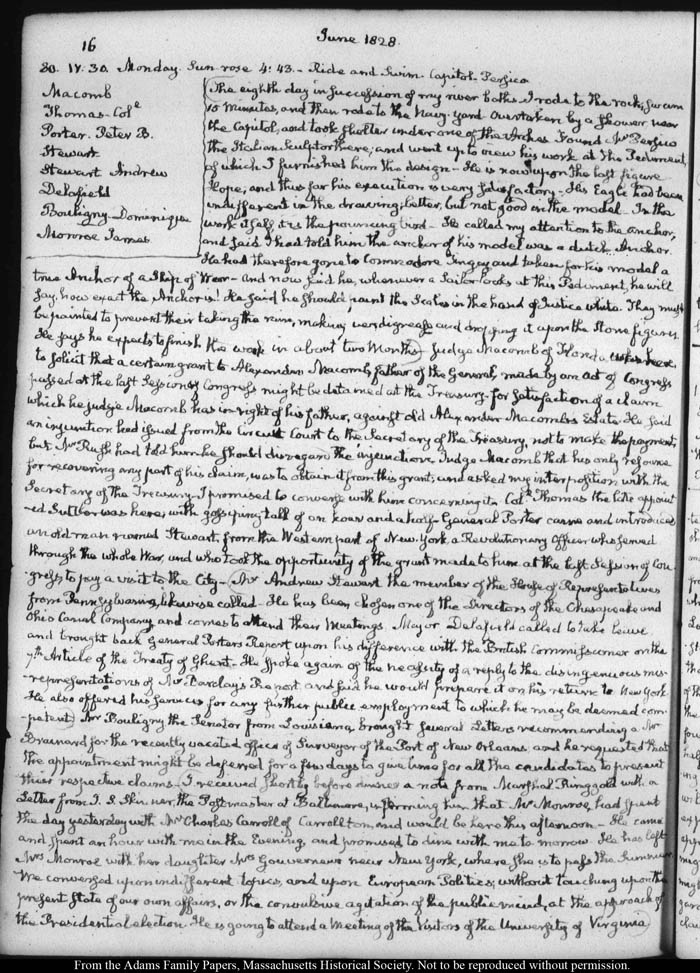 16
June 1828.
30. IV:30. Monday. Sun rose 4:43. - Ride and Swim. Capitol. Persico
Macomb
Thomas - Col.e
Porter. Peter B.
Stewart
Stewart Andrew
Delafield
Bouligny - Dominique
Monroe James
The eighth day in succession of my river baths. I rode to the rock; swam
10 minutes, and then rode to the Navy-yard. Overtaken by a shower near
the Capitol, and took shelter under one of the Arches. Found Mr Persico
the Italian Sculptor there; and went up to view his work at the Pediment,
of which I furnished him the design - He is now upon the last figure
Hope; and thus far his execution is very satisfactory - His Eagle had been
indifferent in the drawing; better, but not good in the model - In the
work itself, it is the pouncing bird - He called my attention to the anchor,
and said I had told him the anchor of his model was a dutch Anchor.
He had therefore gone to Commodore Tingey and taken for his model a
true Anchor of a Ship of War - and now said he, whenever a Sailor looks at this Pediment, he will
say, how exact the Anchor is! He said he should paint the Scales in the hand of Justice white. They must
be painted to prevent their taking the rain, making verdigrease and dropping it upon the Stone figures.
He says he expects to finish the work in about two Months. Judge Macomb of Florida was here
to solicit that a certain grant to Alexander Macomb, father of the General, made by an Act of Congress
passed at the last Session of Congress might be detained at the Treasury - for satisfaction of a claim
which he Judge Macomb has in right of his father, against old Alexander Macomb's Estate. He said
an injunction had issued from the Circuit Court to the Secretary of the Treasury, not to make the payment,
but Mr Rush had told him he should disregard the injunction. Judge Macomb that his only resource
for recovering any part of his claim, was to obtain it from this grant; and asked my interposition with the
Secretary of the Treasury - I promised to converse with him concerning it. Col.e Thomas the late appoint
ed Sutler was here, with gossiping talk of an hour and a half - General Porter came and introduced
an old man named Stewart, from the Western part of New York, a Revolutionary Officer who served
through the whole War, and who took the opportunity of the grant made to him at the last Session of Con
gress to pay a visit to the City - Mr Andrew Stewart the member of the House of Representatives
from Pennsylvania, likewise called - He has been chosen one of the Directors of the Chesapeake and
Ohio Canal Company and comes to attend their Meetings. Major Delafield called to take leave
and brought back General Porter's Report upon his difference with the British Commissioner on the
7th Article of the Treaty of Ghent. He spoke again of the necessity of a reply to the disingenuous mis-
-representations of Mr Barclay's Report and said he would prepare it on his return to New York
He also offered his services for any further public employment to which he may be deemed com-
-petent. Mr Bouligny the Senator from Louisiana, brought several Letters recommending a Mr
Brainard for the recently vacated office of Surveyor of the Port of New Orleans, and he requested that
the appointment might be deferred for a few days to give time for all the candidates to present
their respective claims - I received shortly before dinner a note from Marshal Ringgold with a
Letter from J. S. Skinner the Postmaster at Baltimore, informing him that Mr Monroe, had spent
the day yesterday with Mr Charles Carroll of Carrollton, and would be here this afternoon - He came
and spent an hour with me in the Evening, and promised to dine with me to morrow. He has left
Mrs Monroe with her daughter Mrs Gouverneur near New York, where she is to pass the Summer
We conversed upon indifferent topics, and upon European Politics; without touching upon the
present State of our own affairs, or the convulsive agitation of the public mind, at the approach of
the Presidential election. He is going to attend a Meeting of the Visitors of the University of Virginia
From the Adams Family Papers, Massachusetts Historical Society. Not to be reproduced without permission.